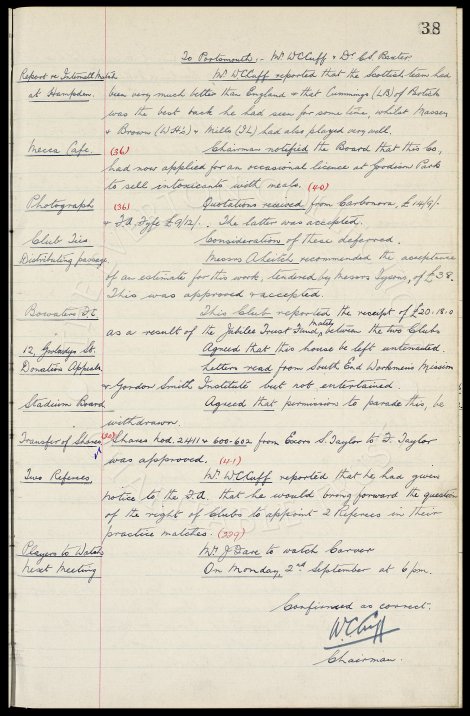 38
To Portsmouth:- Mr WCCuff & Dr CS Baxter
Report re Internatl Match Mr WCCuff reported that the Scottish team had
at Hampden. been very much better than England & that Cummings (LB) of Partick
was the best back he had seen for some time, whilst Massey
& Brown (WHs) & Mills (IL) had also played very well.
Mecca Cafe. (36) Chairman notified the Board that this Co,
had now applied for an occasional licence at Goodison Park
to sell intoxicants with meals. (40)
Photograph (36) Quotations received from Carbonora, £14/9/-
& Fyfe £9/12/-. The latter was accepted.
Club Ties Consideration of these deferred.
Distributing passage. Messrs A Leitch recommended the acceptance
of an estimate for this work, tendered by Messrs Tysons, of £38.
This was approved & accepted.
Bowaters F.C This Club reported the receipt of £20.18.0
as a result of the Jubilee Trust Fund, Match between the two Clubs
12, Gwladys St. Agreed that this house be left untenanted.
Donation Appeals Letters read from South End Workmens Mission
& Gordon Smith Institute but not entertained.
Stadium Board Agreed that permission to parade this, be
withdrawn.
Transfer of Shares Shares Nod. 2411 & 600-602 from Exors S. Taylor to F. Taylor
was approved. (41)
Two Referees Mr WCCuff reported that he had given
notice to the F.A that he would bring forward the question
of the right of Clubs to appoint 2 Referees in their
practice matches. (229)
Players to Watch Mr J Dare to watch Carver
Next Meeting On Monday, 2nd September at 6pm.
Confirmed as correct.
W.C. Cuff
Chairman.